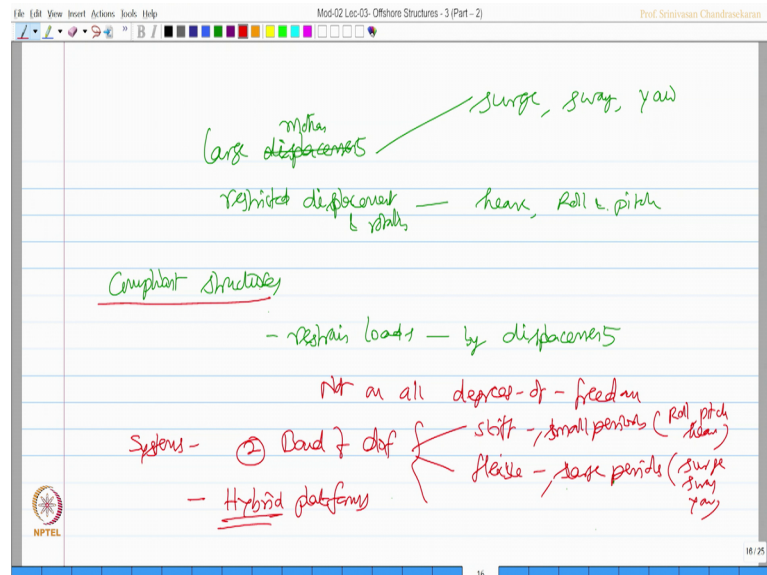 File Edit View Insert Actions Tools Help
Mod-02 Lec-03- Offshore Structures - 3 (Part – 2)
Prof. Srinivasan Chandrasekaran
B I
surge, sway, yaw
motions
large displacements
restricted displacement — heave, Roll & pitch
& rotations
Compliant structures
- restrain loads — by displacements
Not on all degrees-of-freedom
Systems - ② Band of dof
stiff -, small periods (Roll pitch heave)
flexible -, large periods (surge sway yaw)
- Hybrid platforms
NPTEL
16/25
16